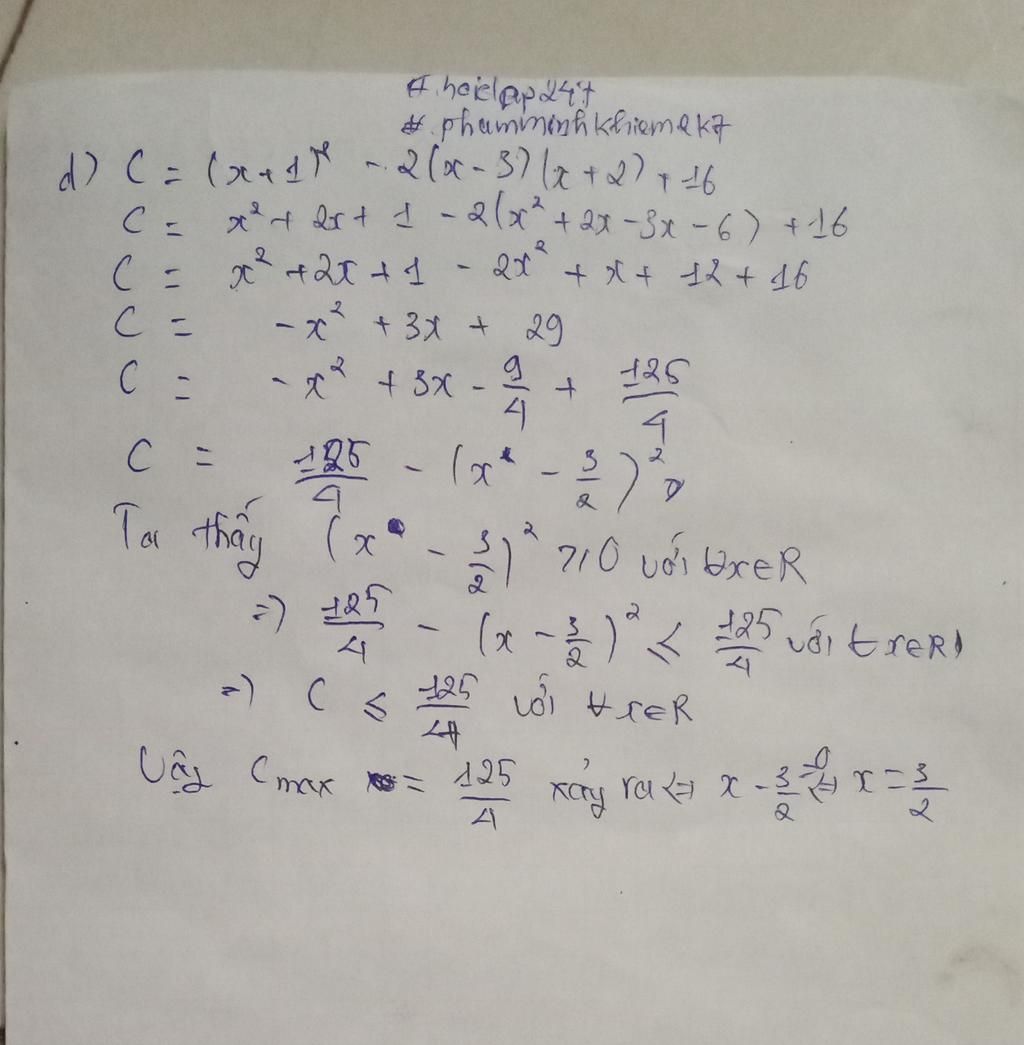 #.hoidap247
#.phamminhkhiem2k7
d) C = (x+1)² - 2(x-3)(x+2) + 16
C = x² + 2x + 1 - 2(x² + 2x - 3x - 6) + 16
C = x² + 2x + 1 - 2x² + x + 12 + 16
C = -x² + 3x + 29
C = -x² + 3x - 9/4 + 125/4
C = 125/4 - (x - 3/2)²
Ta thấy (x - 3/2)² ≥ 0 với ∀x∈R
=> 125/4 - (x - 3/2)² ≤ 125/4 với ∀x∈R
=> C ≤ 125/4 với ∀x∈R
Vậy Cmax = 125/4 xảy ra <=> x - 3/2 = 0 <=> x = 3/2